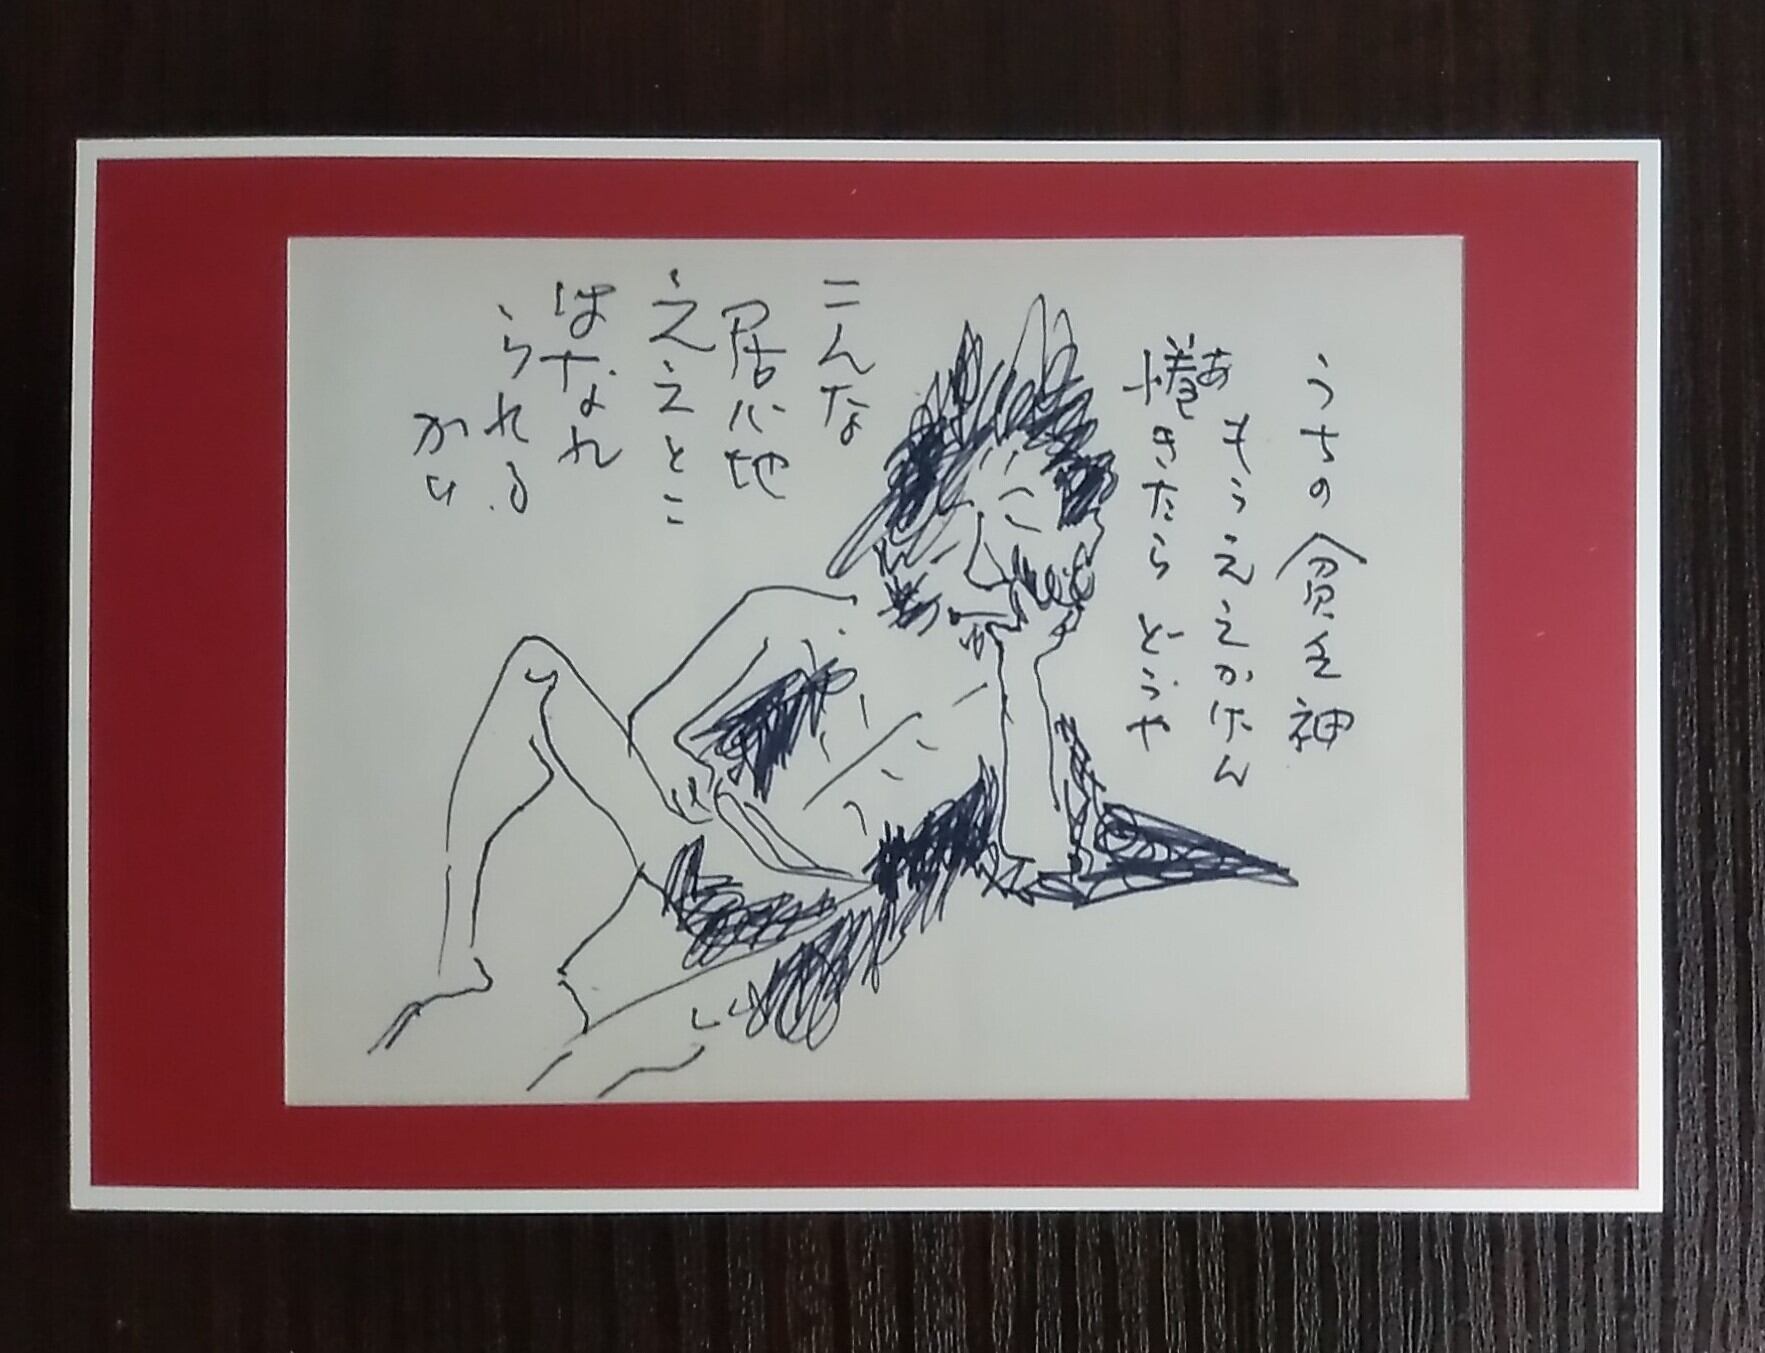 うちの貧乏神
もうええかげん
あ
惓きたらどうや
こんな
居心地
ええとこ
はなれ
られる
かい